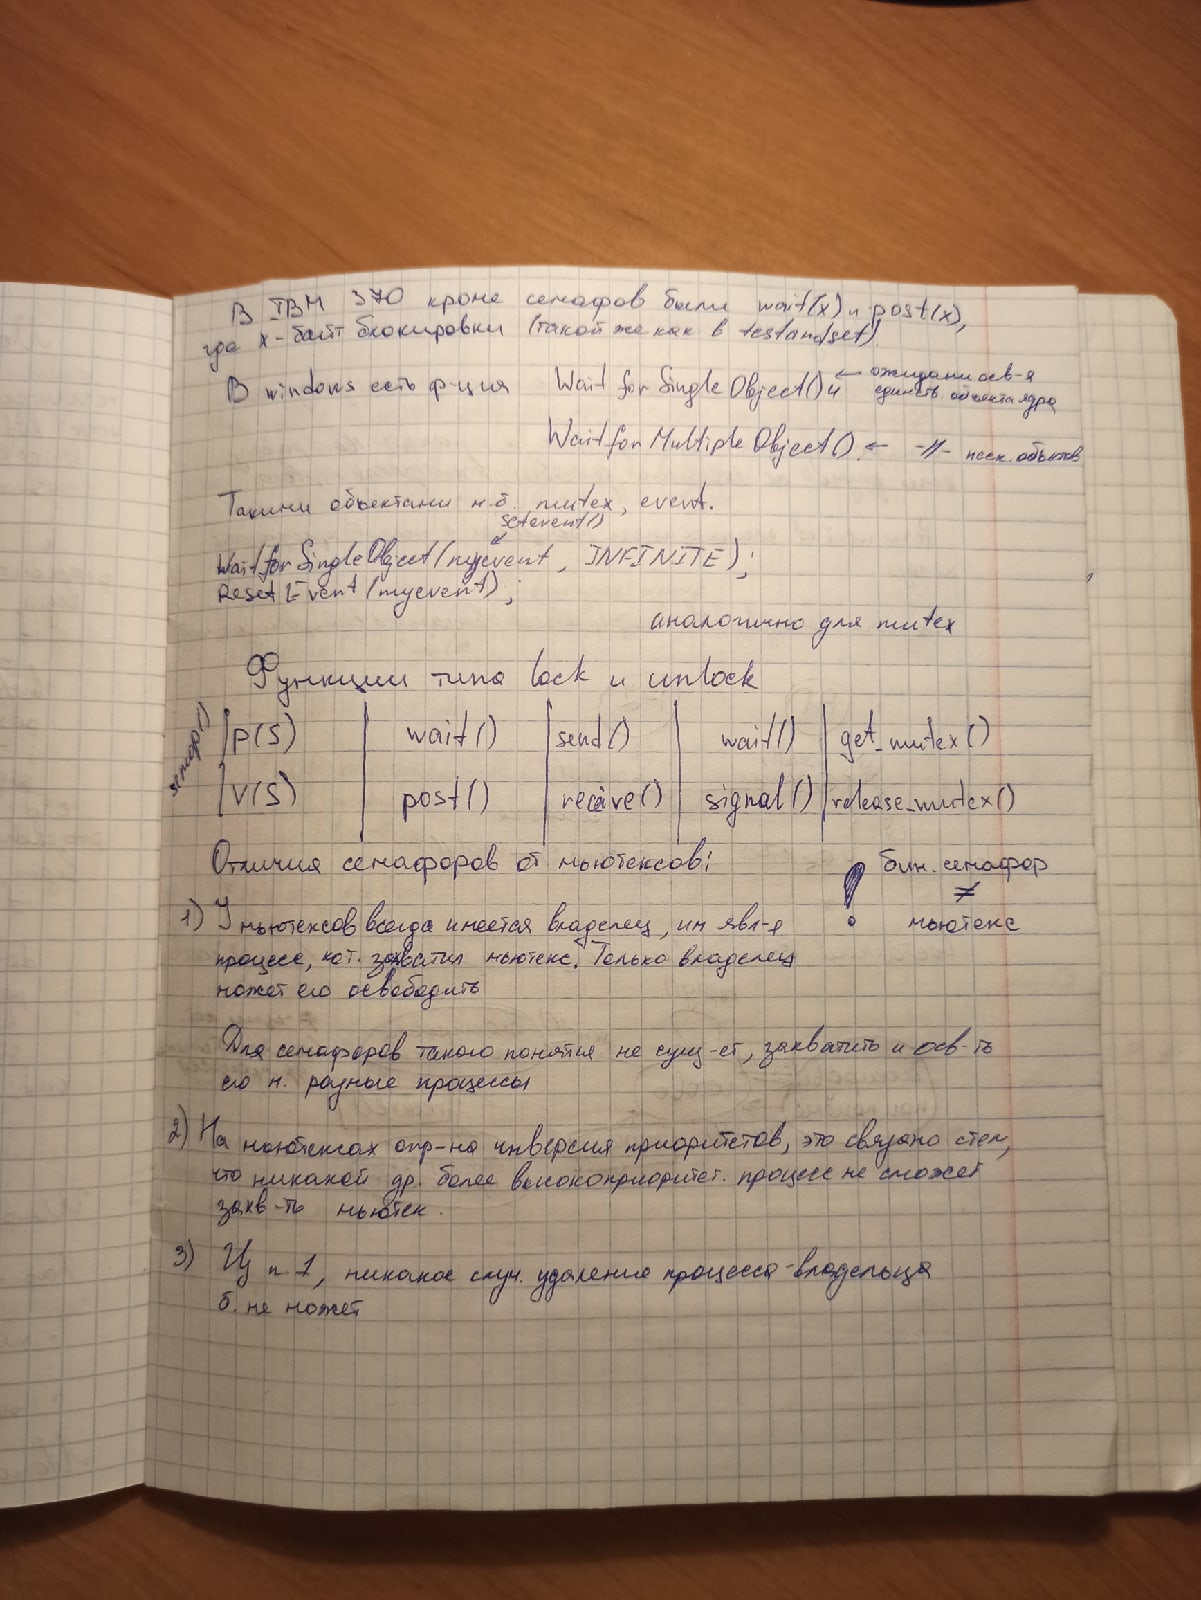 В IBM 370 кроме семафов были wait(x) и post(x),
где x - байт блокировки (такой же как в testandset)
В windows есть ф-ция WaitforSingleObject() и ← ожидани осв-я
единств. объекта ядра
WaitforMultipleObject() ← -//- неск. объктов
Такими объектами м.б. mutex, event.
setevent()
WaitforSingleObject(myevent, INFINITE);
Reset Event(myevent);
аналогично для mutex
Функции типа lock и unlock
P(S) | wait() | send() | wait() | get_mutex()
V(S) | post() | receive() | signal() | release_mutex()
Отличия семафоров от мьютексов:
! бин. семафор
≠
мьютекс
1) У мьютексов всегда имеется владелец, им явл-я
процесс, кот. захватил мьютекс. Только владелец
может его освободить
Для семафоров такого понятия не сущ-ет, захватить и осв-ть
его м. разные процессы
2) На мьютексах опр-на инверсия приоритетов, это связано с тем,
что никакой др. более высокоприоритет. процесс не сможет
захв-ть мьютек.
3) Из п.1, никакое случ. удаление процесса-владельца
б. не может